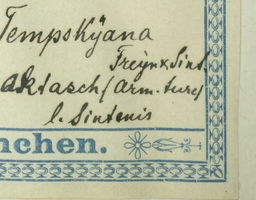 Tempskÿana
Freyn & Sint.
Aktasch (Arm. turc)
l. Sintenis
nchen.